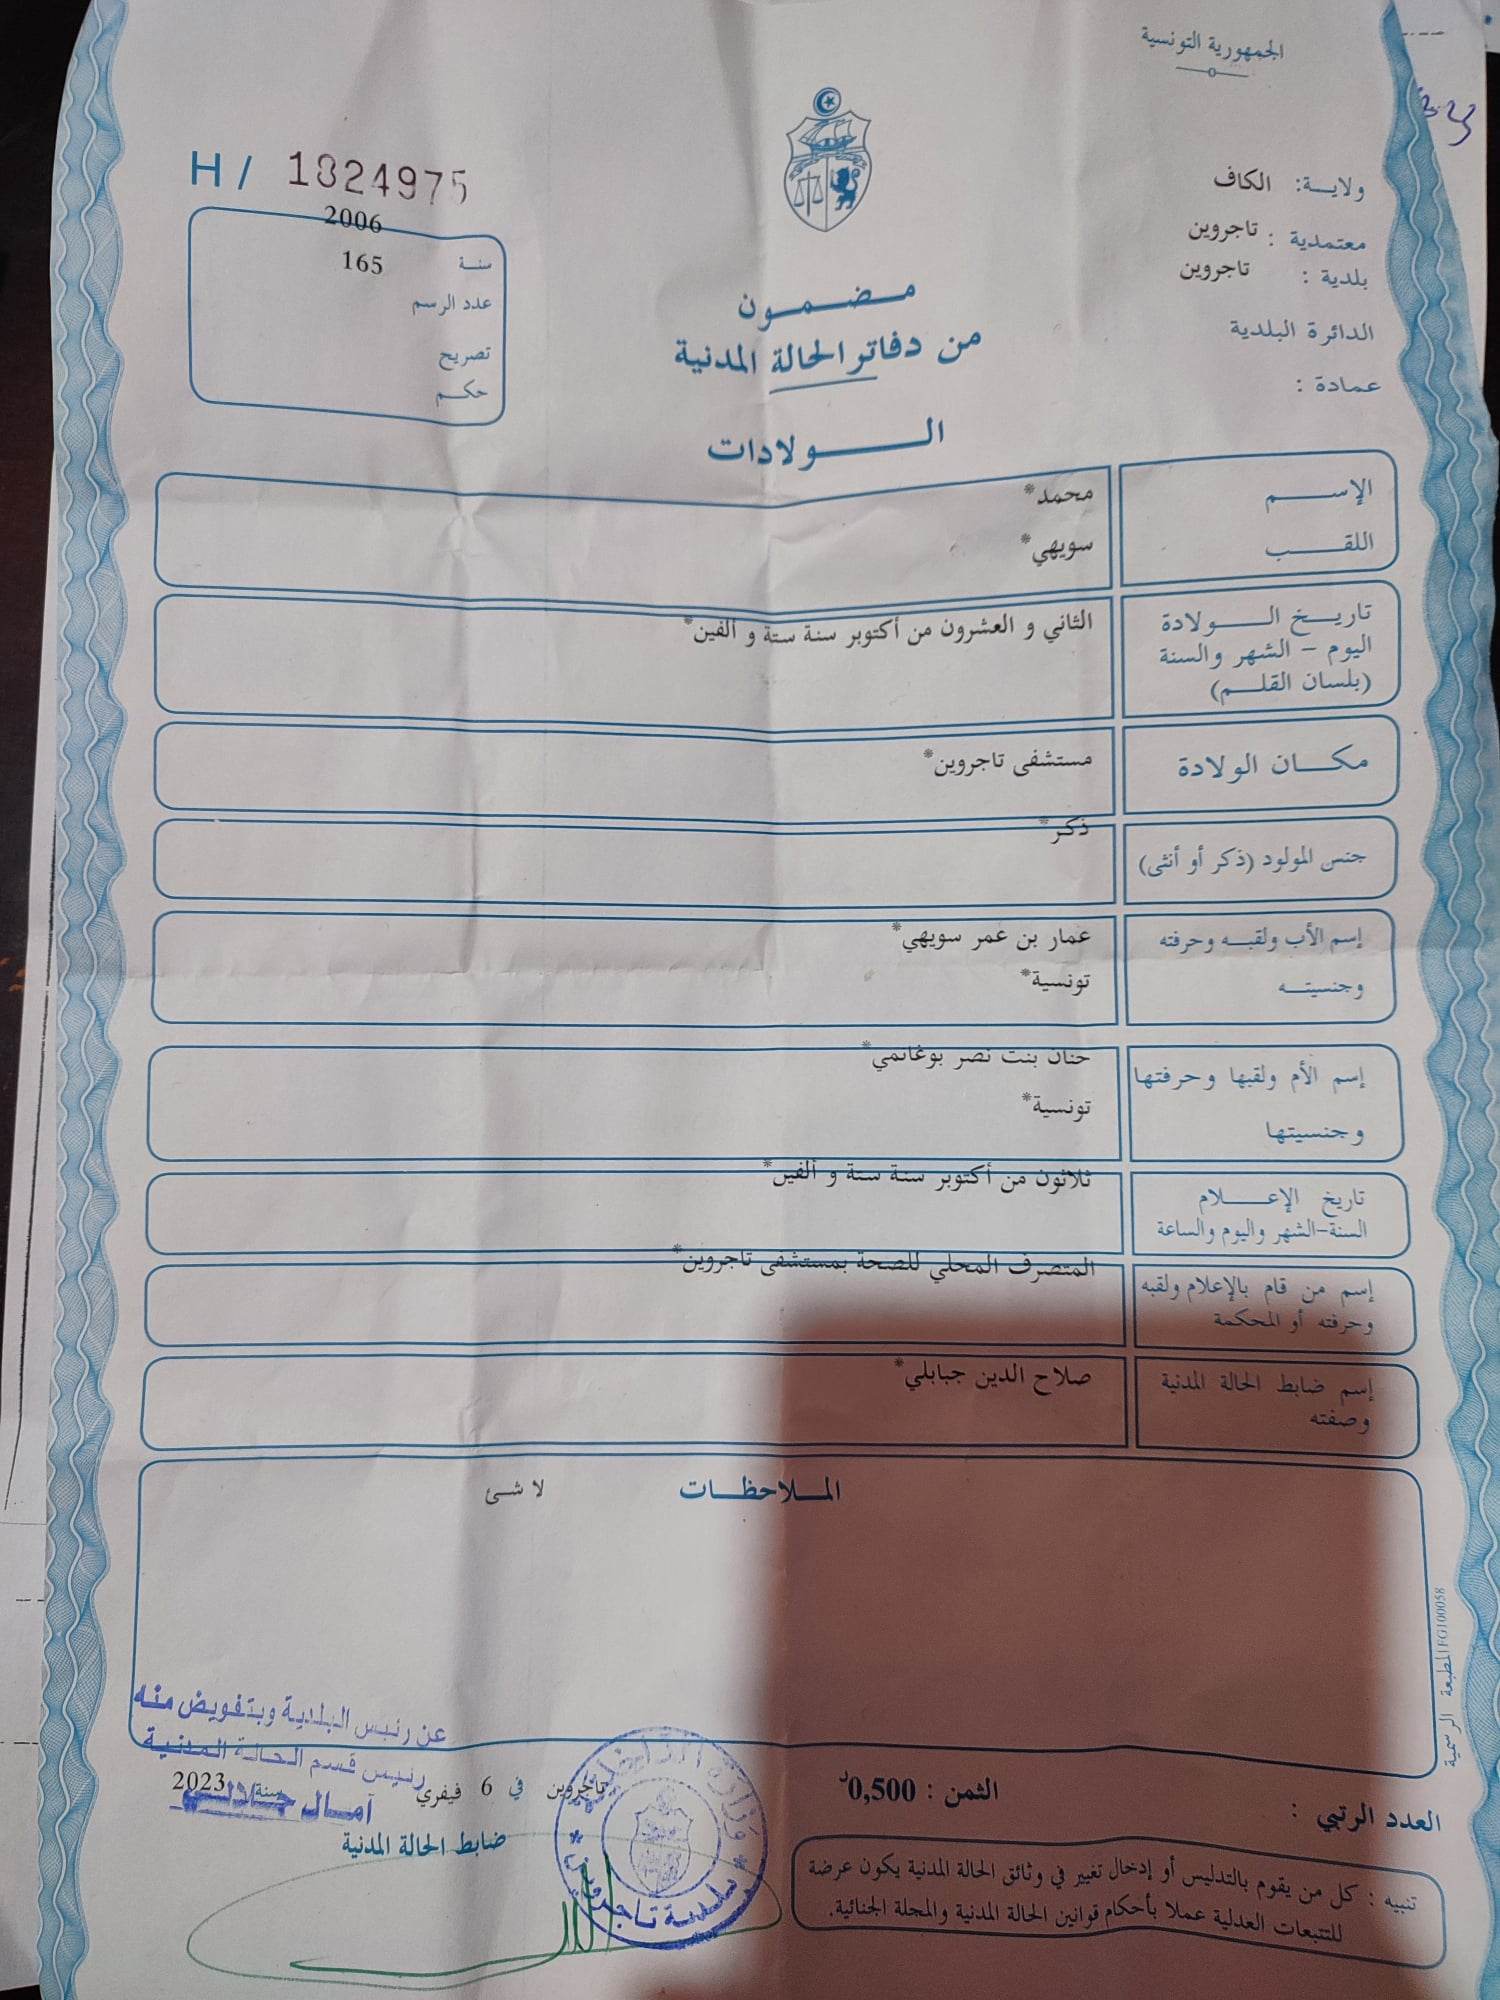 الجمهورية التونسية
ولايـة: الكاف
معتمدية : تاجروين
بلدية : تاجروين
الدائرة البلدية
عمادة :
H / 1824975
2006
سنة 165
عدد الرسم
تصريح
حكم
مضمون
من دفاتر الحالة المدنية
الولادات
الإسم محمد*
اللقب سويهي*
تاريخ الولادة الثاني و العشرون من أكتوبر سنة ستة و ألفين*
اليوم - الشهر والسنة
(بلسان القلم)
مكان الولادة مستشفى تاجروين*
جنس المولود (ذكر أو أنثى) ذكر*
إسم الأب ولقبه وحرفته عمار بن عمر سويهي*
وجنسيته تونسية*
إسم الأم ولقبها وحرفتها حنان بنت نصر بوغانمي*
وجنسيتها تونسية*
تاريخ الإعلام ثلاثون من أكتوبر سنة ستة و ألفين*
السنة-الشهر واليوم والساعة
إسم من قام بالإعلام ولقبه المتصرف المحلي للصحة بمستشفى تاجروين*
وحرفته أو المحكمة
إسم ضابط الحالة المدنية صلاح الدين جبابلي*
وصفته
الملاحظات لا شئ
المطبعة الرسمية FG100058
عن رئيس البلدية وبتفويض منه
رئيس قسم الحالة المدنية
آمال
تاجروين في 6 فيفري سنة 2023
ضابط الحالة المدنية
وزارة الداخلية
بلدية تاجروين
العدد الرتبي :
الثمن : 0,500د
تنبيه : كل من يقوم بالتدليس أو إدخال تغيير في وثائق الحالة المدنية يكون عرضة
للتتبعات العدلية عملا بأحكام قوانين الحالة المدنية والمجلة الجنائية.